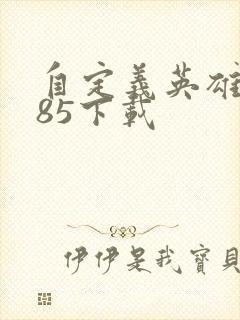 自定義英雄
85下載
伊伊是我寶貝